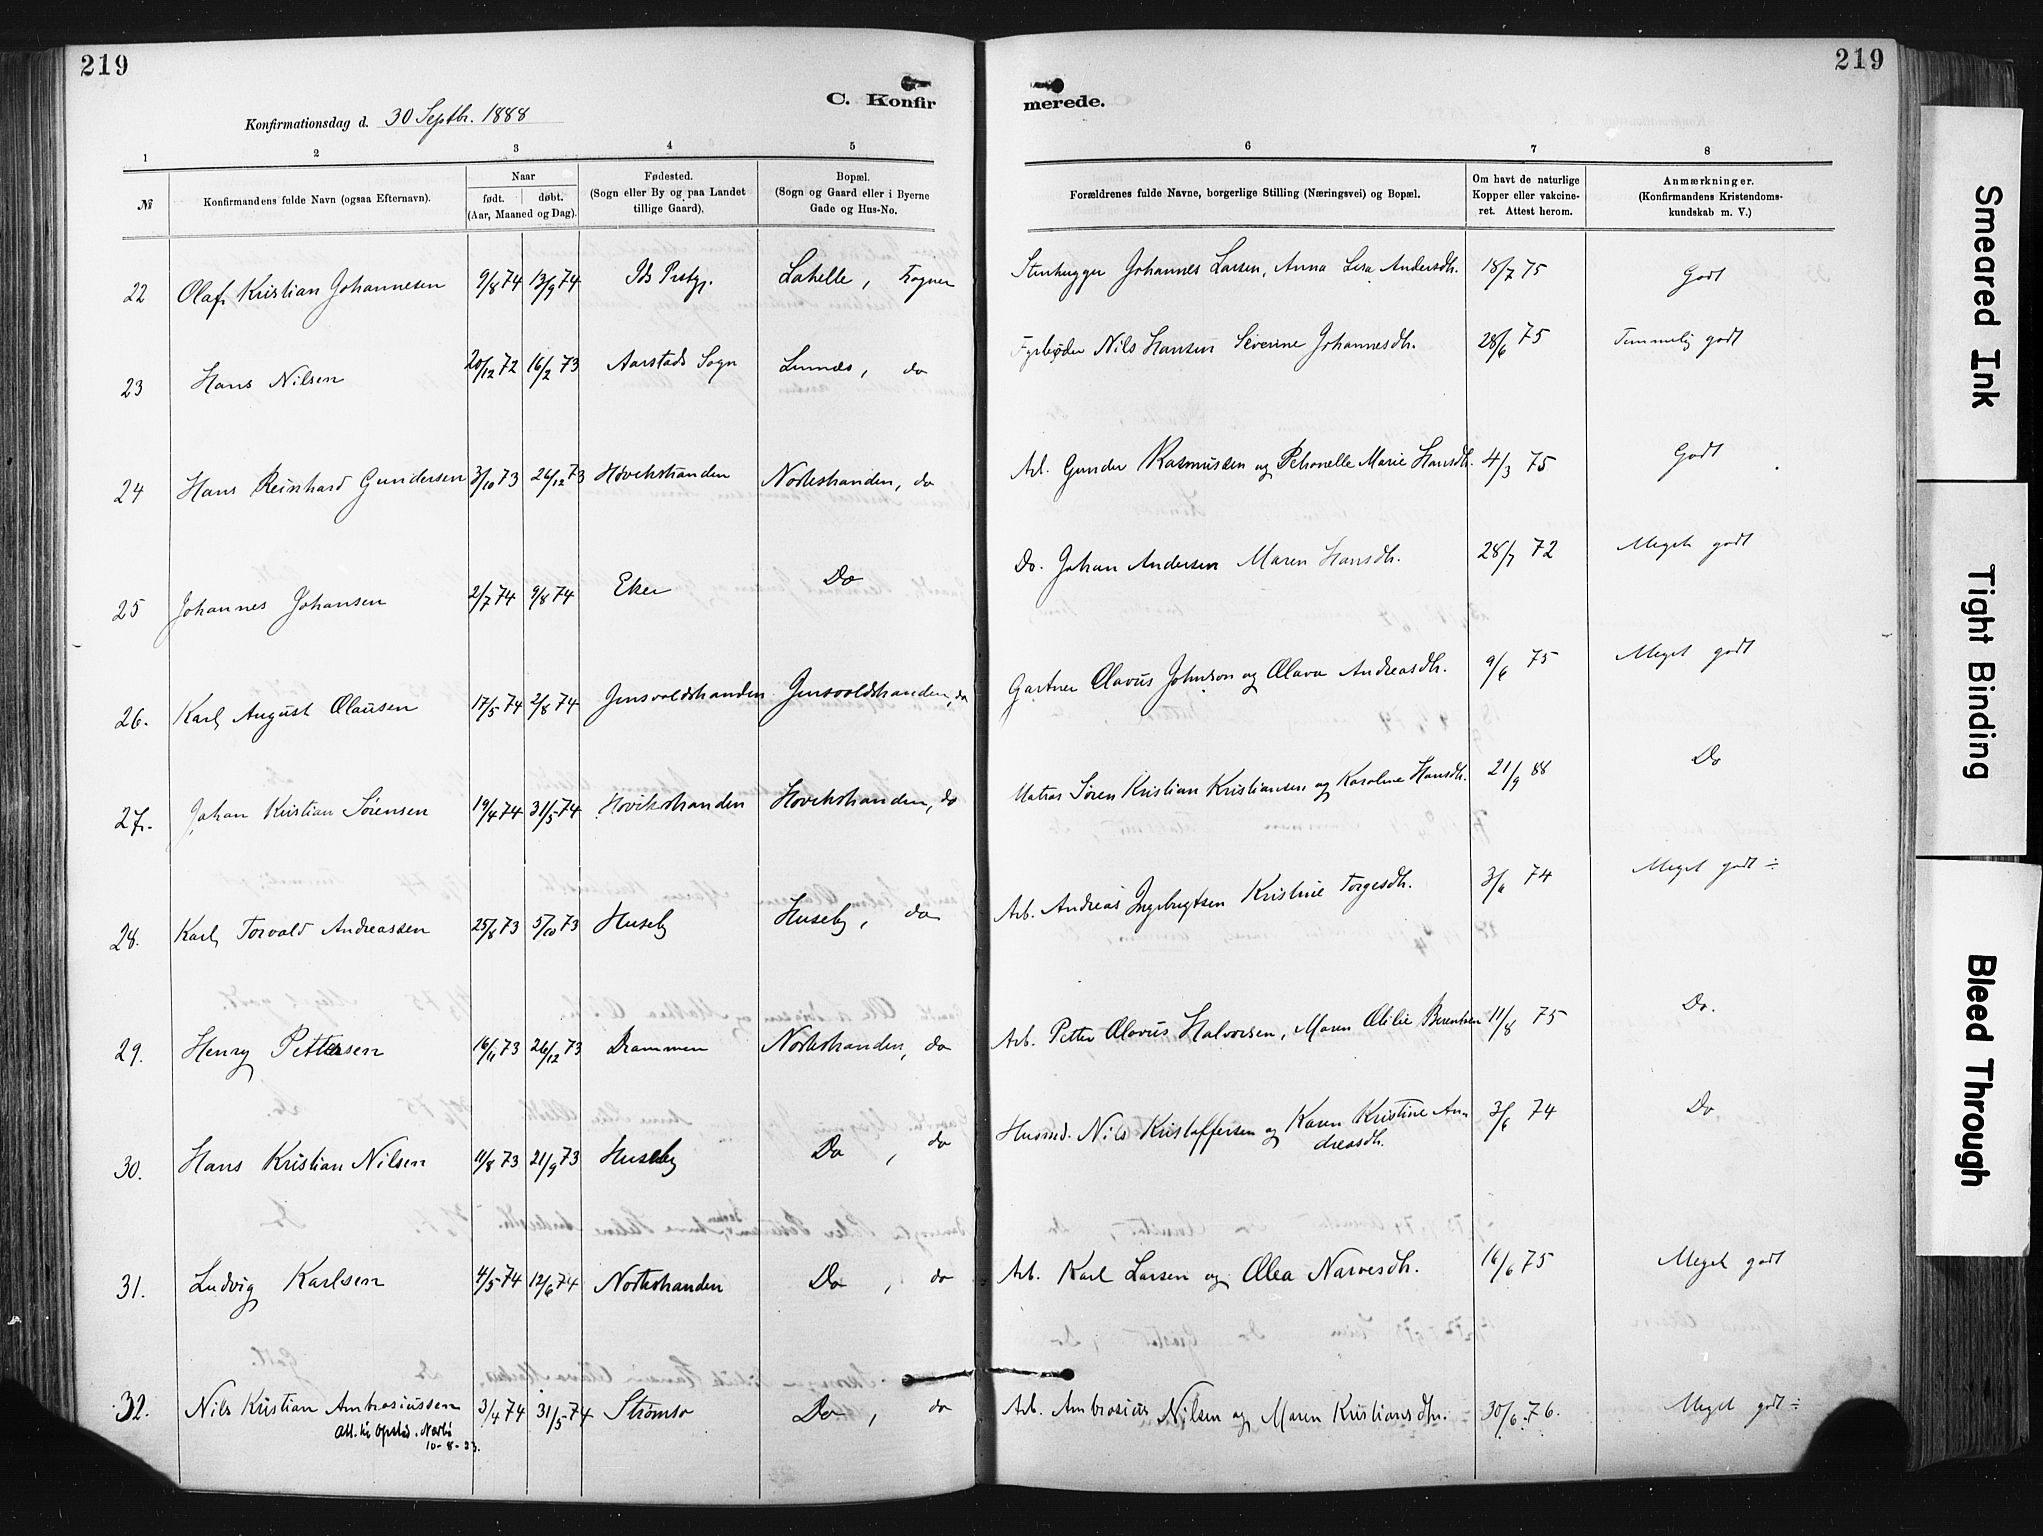 219
219
C. Konfir
merede.
Konfirmationsdag d. 30 Septbr. 1888
1
2
3
4
5
6
7
8
№
Konfirmandens fulde Navn (ogsaa Efternavn).
Naar
født. døbt.
(Aar, Maaned og Dag).
Fødested.
(Sogn eller By og paa Landet
tillige Gaard).
Bopæl.
(Sogn og Gaard eller i Byerne
Gade og Hus-No.
Forældrenes fulde Navne, borgerlige Stilling (Næringsvei) og Bopæl.
Om havt de naturlige
Kopper eller vakcine-
ret. Attest herom.
Anmærkninger.
(Konfirmandens Kristendoms-
kundskab m. V.)
22 Olaf Kristian Johannesen 9/8 74 13/9 74 Ids Prstgj. Lahelle, Sogner Stenhugger Johannes Larsen, Anna Lisa Andersdtr. 18/7 75 Godt
23 Hans Nilsen 20/12 72 16/2 73 Aarstads Sogn Lunnes, do Fyrbøder Nils Hansen Severine Johannesdtr. 28/6 75 Temmelig godt
24 Hans Reinhard Gundersen 3/10 73 26/12 73 Høvikstranden Nordstranden, do Arb. Gunder Rasmussen og Petronelle Marie Hansdtr. 4/3 75 Godt
25 Johannes Johansen 2/7 74 9/8 74 Eker Do Do. Johan Andersen Maren Hansdtr. 28/7 72 Meget godt
26. Karl August Olausen 17/5 74 2/8 74 Gjensvoldstranden Gjensvoldstranden, do Gartner Olavus Johnson og Olava Andreasdtr. 9/6 75 Meget godt
27. Johan Kristian Sørensen 19/4 74 31/5 74 Høvikstranden Høvikstranden, do Matros Søren Kristian Kristiansen og Karoline Hansdtr. 21/9 88 Do
28. Karl Torvald Andreassen 25/8 73 5/10 73 Huseby Huseby, do Arb. Andreas Ingebrigtsen Kristine Torgesdtr. 3/6 74 Meget godt ÷
29. Henry Pettersen 16/11 73 26/12 73 Drammen Nordstranden, do Arb. Petter Olavus Halvorsen, Maren Otilie Berentsen 11/8 75 Do.
30. Hans Kristian Nilsen 11/8 73 21/9 73 Huseby Do, do Husmd. Nils Kristoffersen og Karen Kristine An-
dreasdtr. 3/6 74 Do
31. Ludvig Karlsen 4/5 74 12/6 74 Nordstranden Do, do Arb. Karl Larsen og Olea Narvesdtr. 16/6 75 Meget godt
32. Nils Kristian Ambrosiussen 3/4 74 31/5 74 Strømsø Do, do Arb. Ambrosius Nilsen og Maren Kristiansdtr. 30/6 76. Meget godt ÷
10-8-23.
Smeared Ink
Tight Binding
Bleed Through